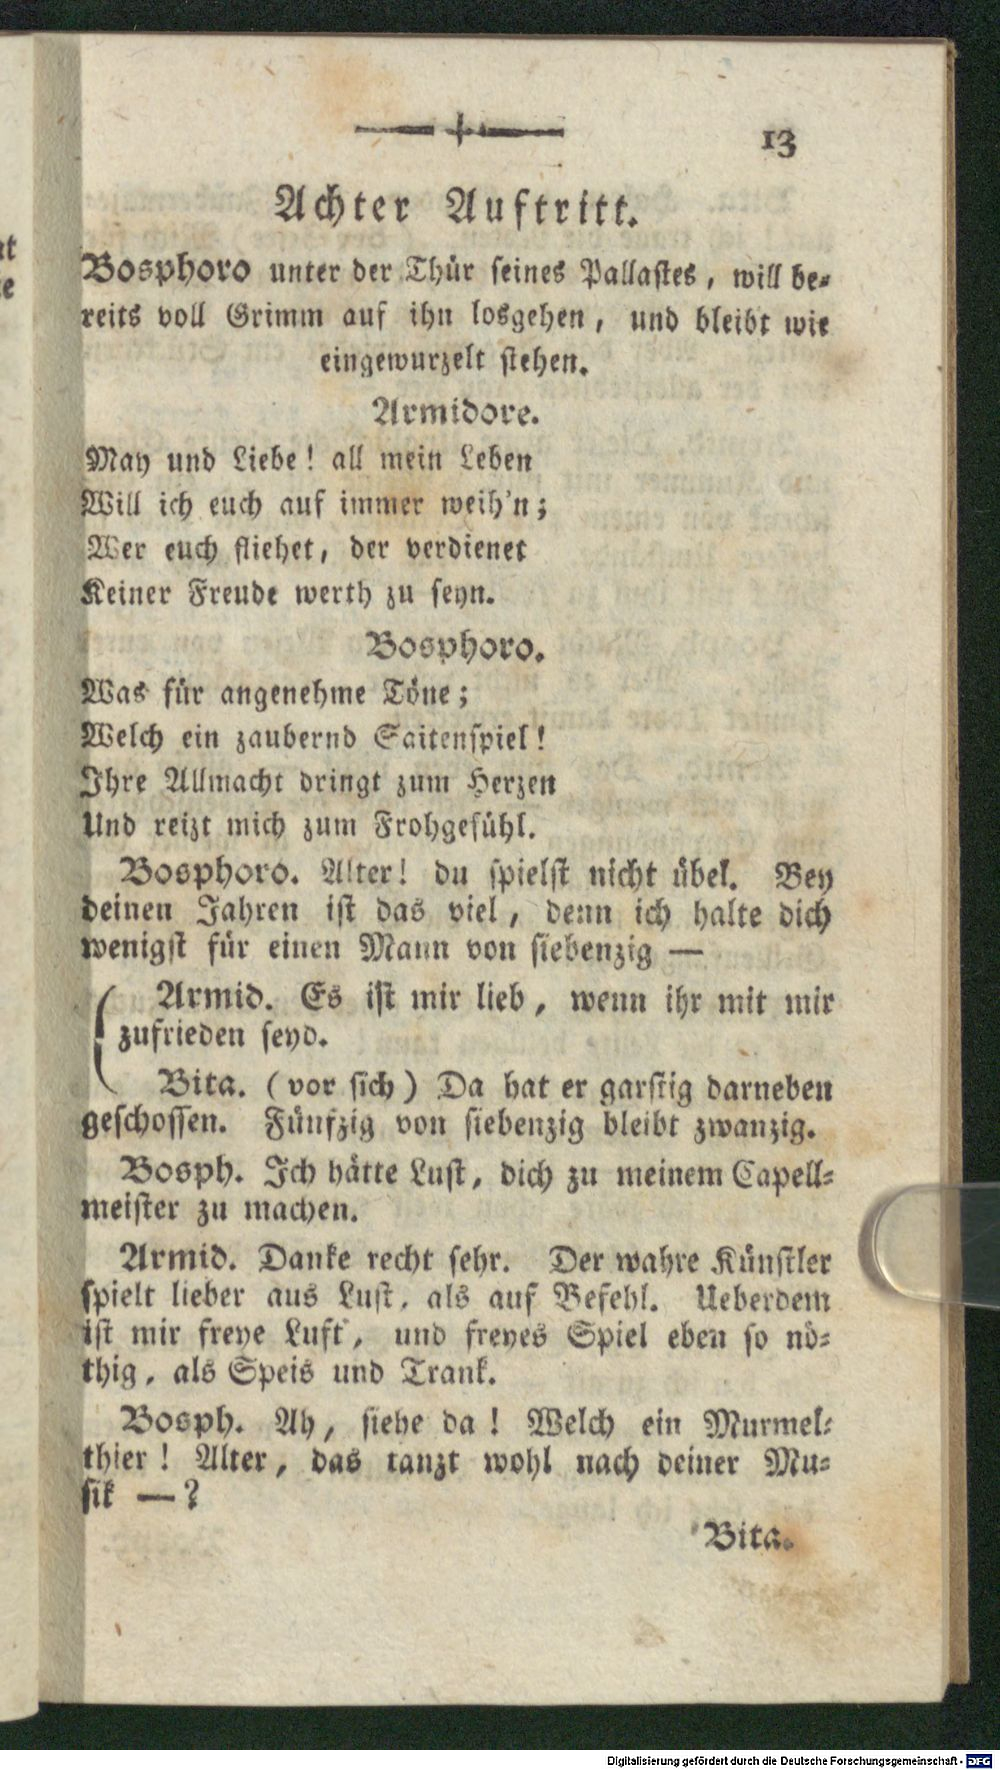 13
Achter Auftritt.
Bosphoro unter der Thür seines Pallastes, will be-
reits voll Grimm auf ihn losgehen, und bleibt wie
eingewurzelt stehen.
Armidore.
May und Liebe! all mein Leben
Will ich euch auf immer weih'n;
Wer euch fliehet, der verdienet
Keiner Freude werth zu seyn.
Bosphoro.
Was für angenehme Töne;
Welch ein zaubernd Saitenspiel!
Ihre Allmacht dringt zum Herzen
Und reizt mich zum Frohgefühl.
Bosphoro. Alter! du spielst nicht übel. Bey
deinen Jahren ist das viel, denn ich halte dich
wenigst für einen Mann von siebenzig —
Armid. Es ist mir lieb, wenn ihr mit mir
zufrieden seyd.
Bita. (vor sich) Da hat er garstig darneben
geschossen. Fünfzig von siebenzig bleibt zwanzig.
Bosph. Ich hätte Lust, dich zu meinem Capell-
meister zu machen.
Armid. Danke recht sehr. Der wahre Künstler
spielt lieber aus Lust, als auf Befehl. Ueberdem
ist mir freye Luft, und freyes Spiel eben so nö-
thig, als Speis und Trank.
Bosph. Ah, siehe da! Welch ein Murmel-
thier! Alter, das tanzt wohl nach deiner Mu-
sik —?
Bita.
Digitalisierung gefördert durch die Deutsche Forschungsgemeinschaft - DFG